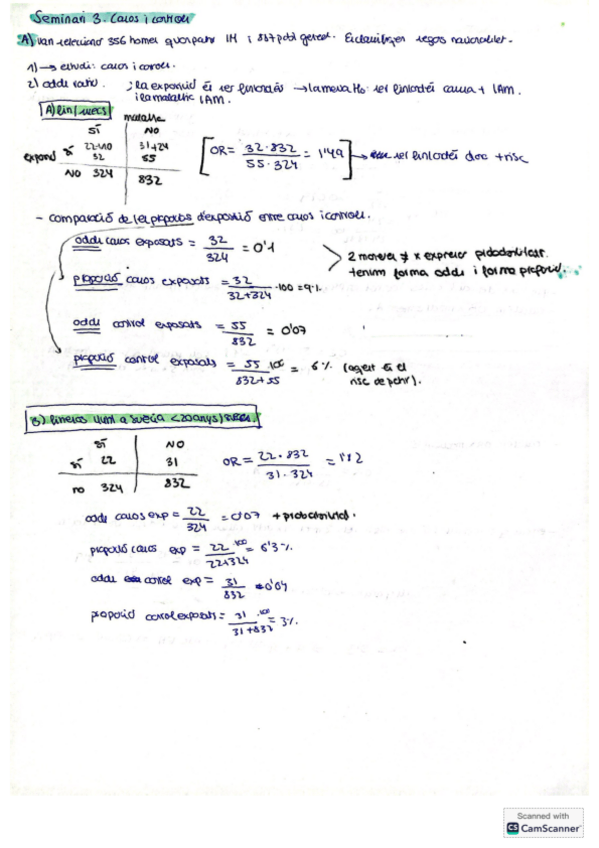 Seminari 3. Casos i controls
A) van seleccionar 356 homes que patir IM i 887 pobl general. Es classifiquen segons nacionalitat.
1) → estudi: casos i controls.
2) odds ratio. ; la exposició és ser finlandès → la meva Ho: ser finlandès causa + IAM.
i la malaltia IAM.
A) fin/suecs
malaltia
SÍ NO
exposició SÍ 22+10 31+24
32 55
NO 324 832
[OR = 32·832 / 55·324 = 1'49] → ser finlandès doc + risc
- comparació de les proporcions d'exposició entre casos i controls.
odds casos exposats = 32/324 = 0'1
proporció casos exposats = 32/32+324 ·100 = 9%
2 maneres ≠ x expressar probabilitat.
tenim forma odds i forma proporció.
odds control exposats = 55/832 = 0'07
proporció control exposats = 55/832+55 ·100 = 6%
(aquest és el
risc de patir).
B)
a suècia <20anys/suecs.
SÍ NO
SÍ 22 31
no 324 832
OR = 22·832 / 31·324 = 1'12
odds casos exp = 22/324 = 0'07 + probabilitat.
proporció casos exp = 22/22+324 ·100 = 6'3%
odds control exp = 31/832 = 0'04
proporció control exposats = 31/31+832 ·100 = 3%
Scanned with
CS CamScanner